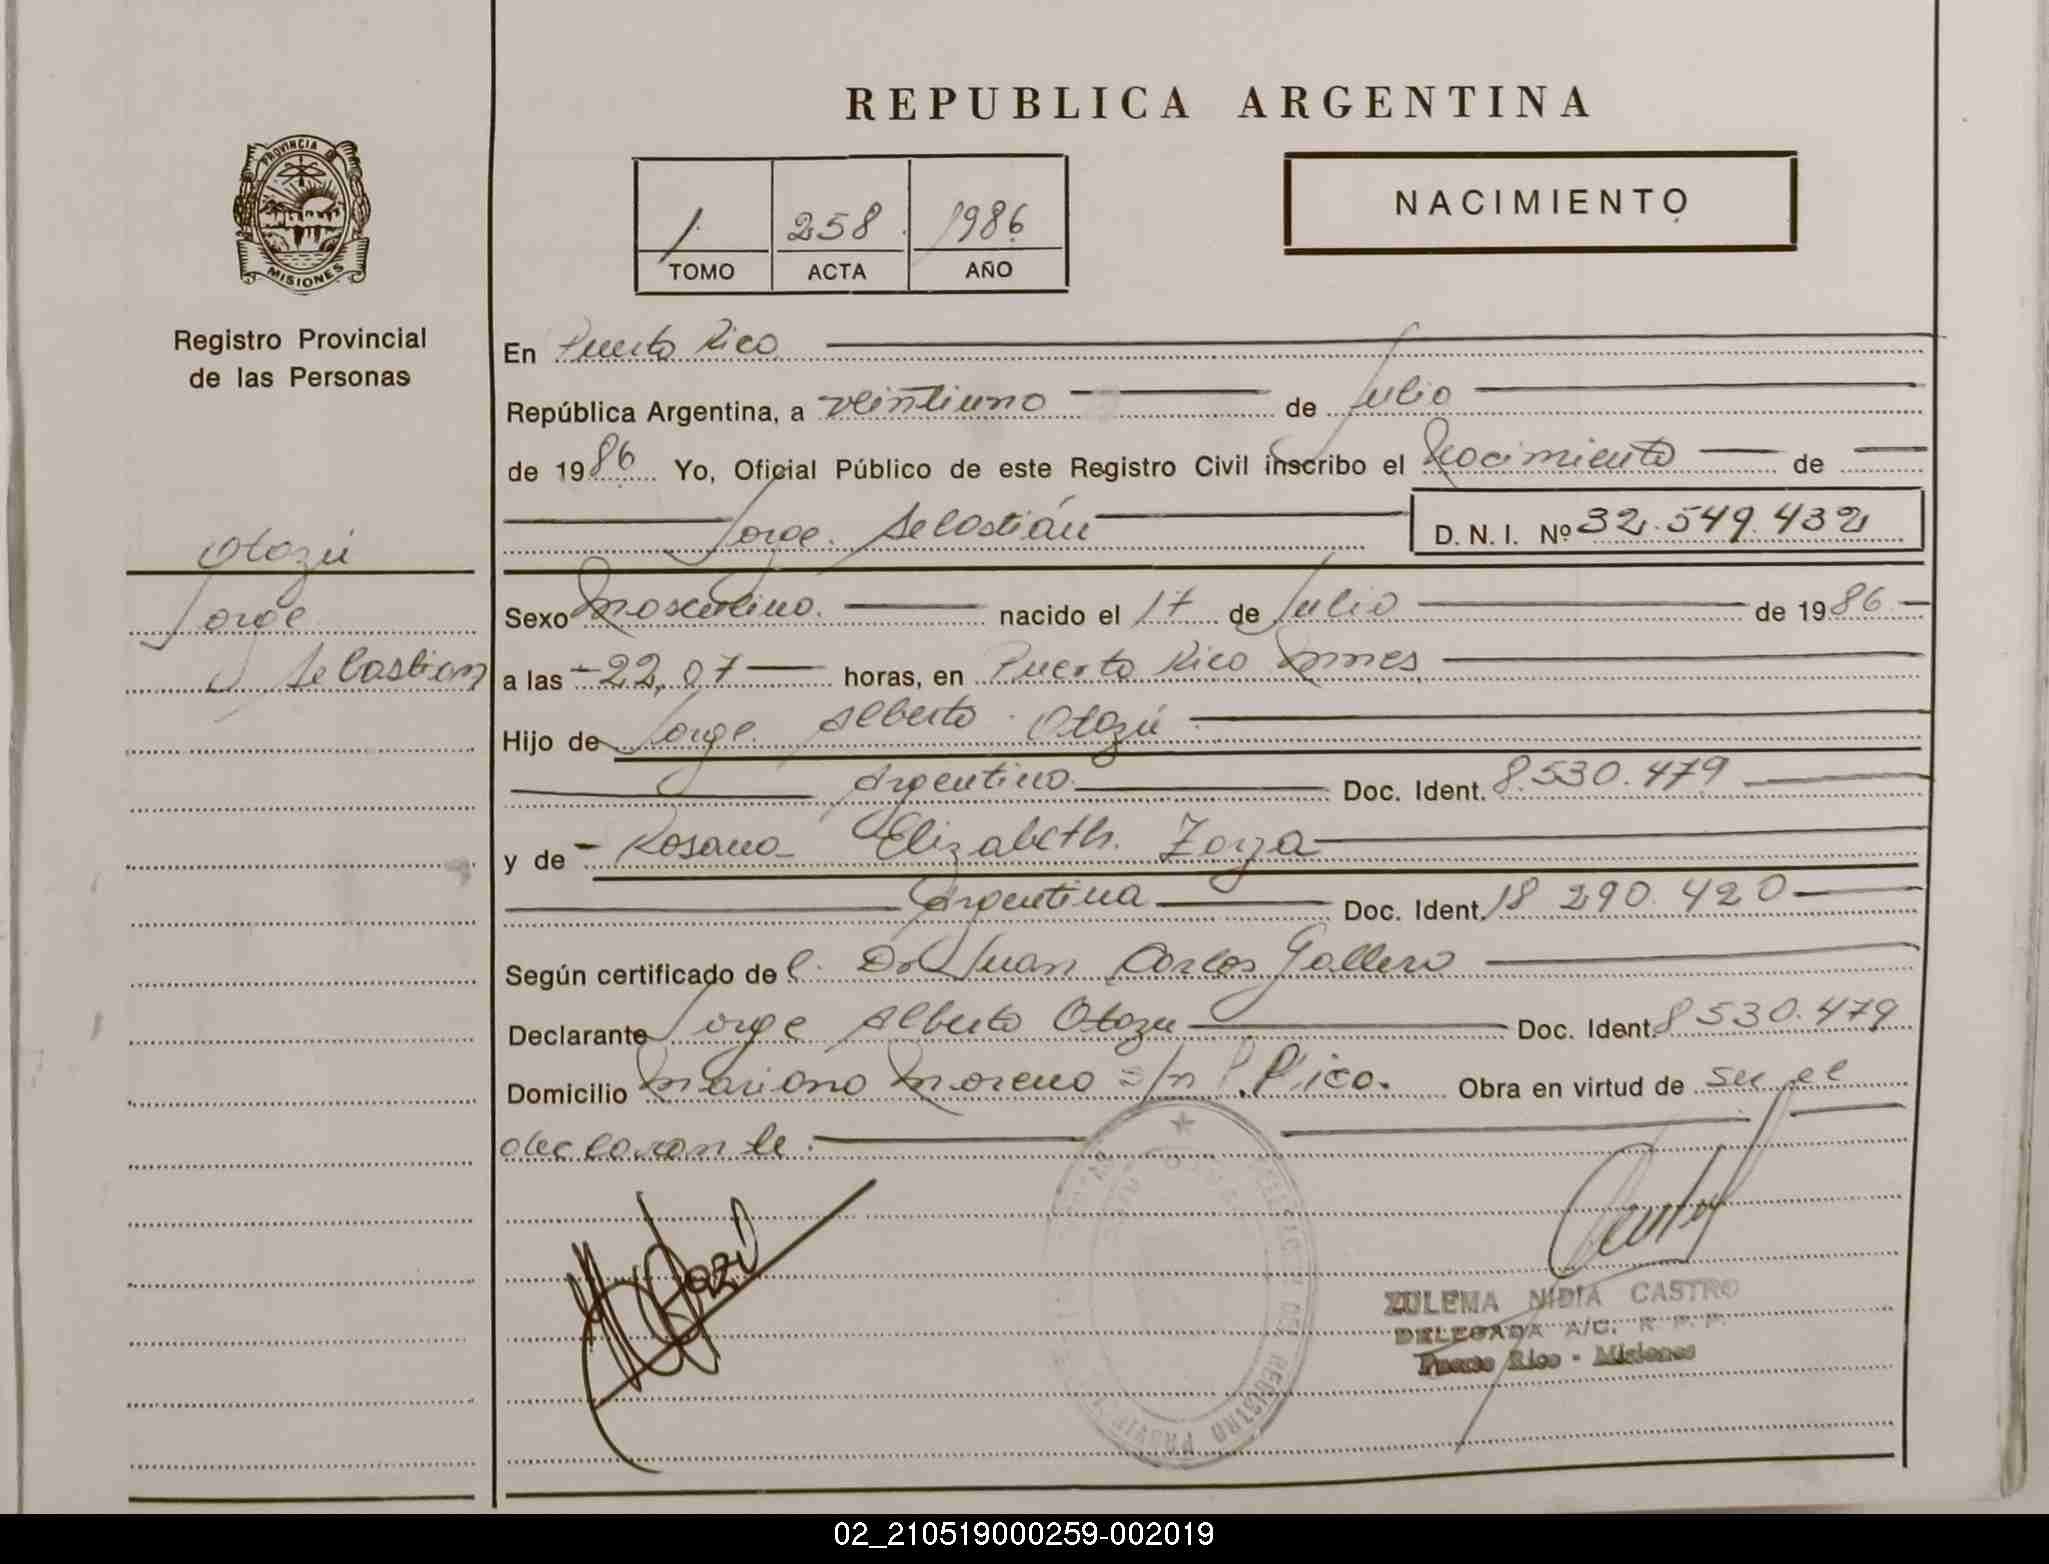 REPUBLICA ARGENTINA
PROVINCIA DE
MISIONES
Registro Provincial
de las Personas
1 258 1986
TOMO ACTA AÑO
NACIMIENTO
Otazú
Jorge
Sebastian
En Puerto Rico
República Argentina, a veintiuno de Julio
de 1986 Yo, Oficial Público de este Registro Civil inscribo el Nacimiento de
Jorge Sebastián D. N. I. Nº 32.549.432
Sexo Masculino. nacido el 17 de Julio de 1986
a las 22,07 horas, en Puerto Rico Mnes
Hijo de Jorge Alberto Otazú
Argentino. Doc. Ident. 8.530.479
y de Rosana Elizabeth. Zoya
Argentina Doc. Ident. 18 290.420
Según certificado de l. Dr Juan Carlos Gallero
Declarante Jorge Alberto Otazu Doc. Ident. 8 530.479
Domicilio Mariano Moreno s/n P. Rico. Obra en virtud de su el
declarante.
Otazú
ZULEMA NIDIA CASTRO
DELEGADA A/C. R. P. P.
Puerto Rico - Misiones
02_210519000259-002019